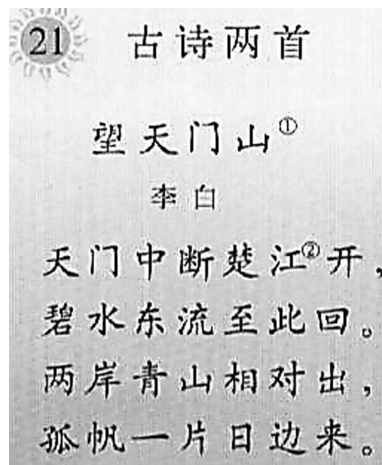 21 古诗两首
望天门山①
李白
天门中断楚江②开，
碧水东流至此回。
两岸青山相对出，
孤帆一片日边来。